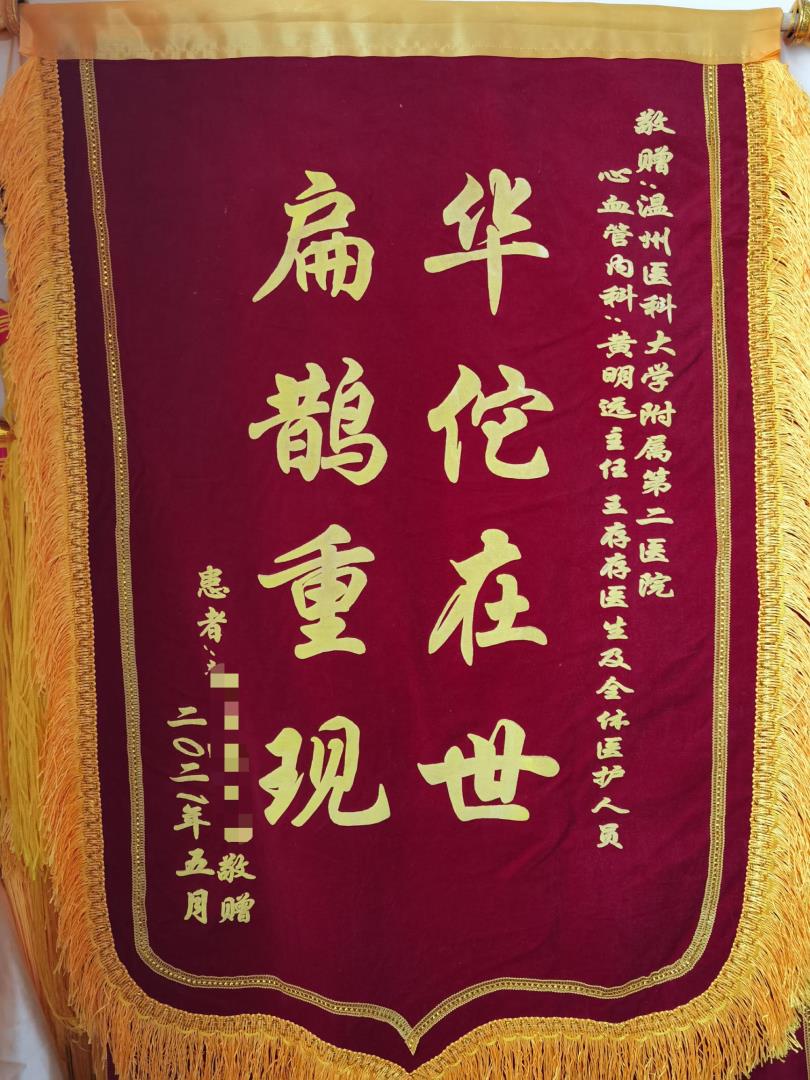 敬赠：温州医科大学附属第二医院
心血管内科：黄明远主任王存存医生及全体医护人员
华佗在世
扁鹊重现
患者：
敬赠
二〇二一年五月